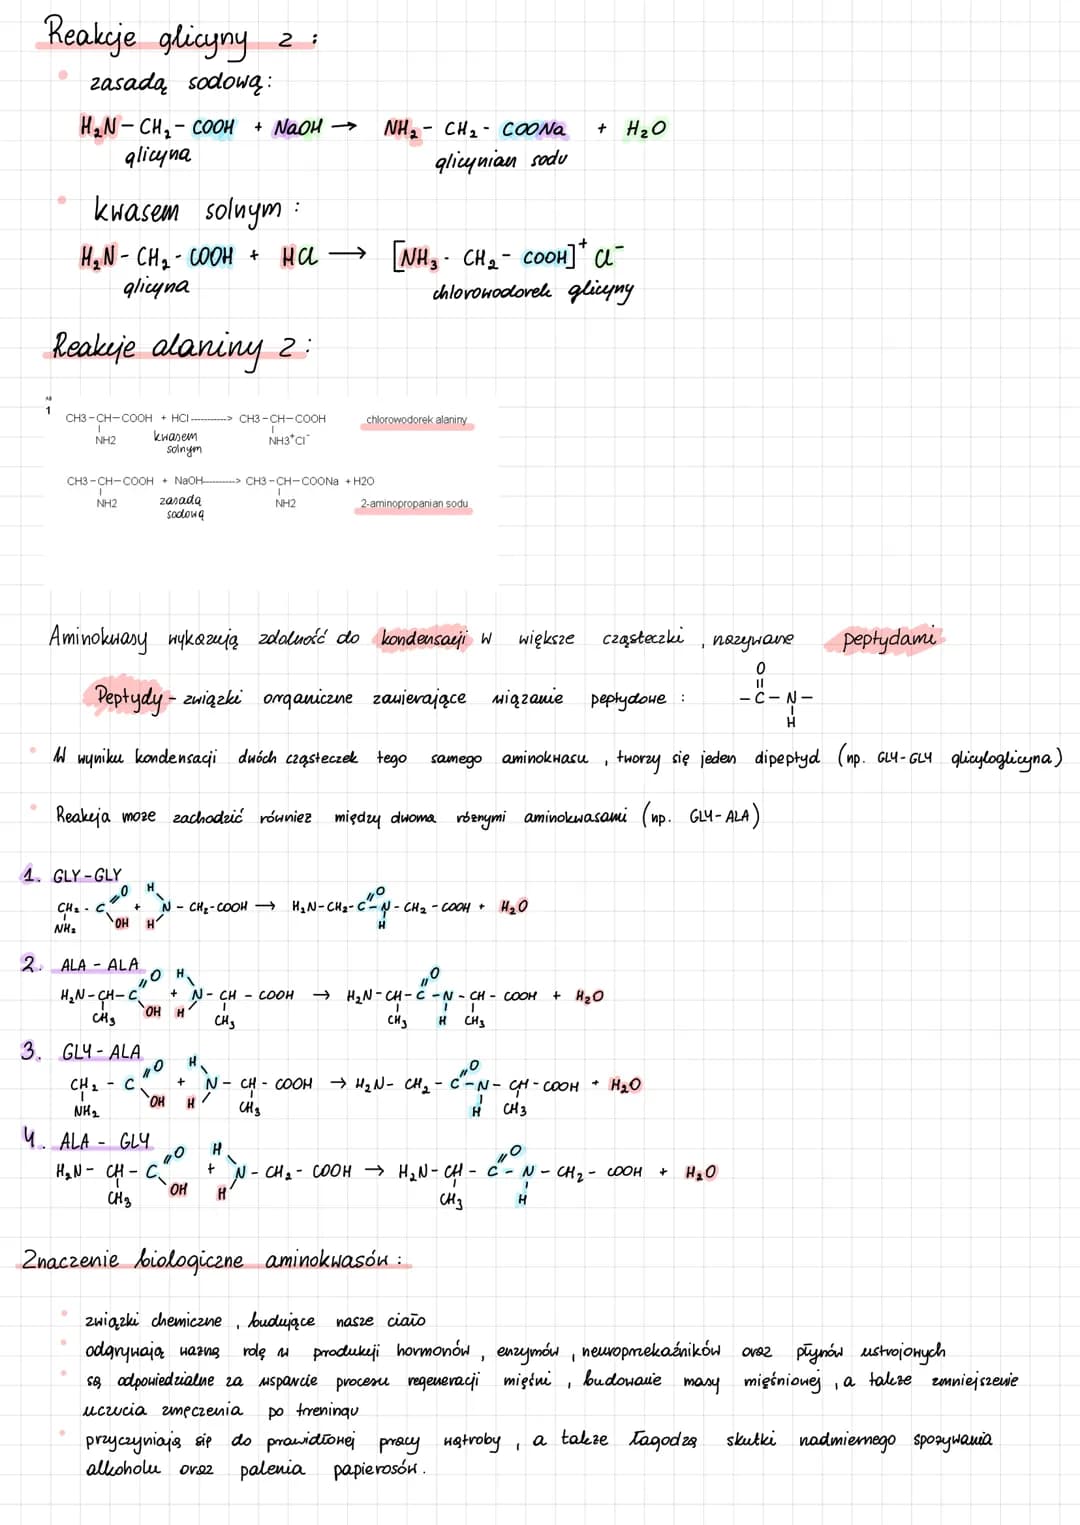 Reakcje glicyny z :
• zasadą sodową:
H₂N – CH₂ – COOH + NaOH → NH₂ – CH₂ - COONa + H₂O
glicyna glicynian sodu
• kwasem solnym :
H₂N – CH₂ - COOH + HCl → [NH₃ - CH₂ – COOH]⁺ Cl⁻
glicyna chlorowodorek glicyny
Reakcje alaniny z :
1
CH3-CH-COOH + HCl ----------> CH3-CH-COOH chlorowodorek alaniny
NH2 kwasem solnym NH3⁺Cl⁻
CH3-CH-COOH + NaOH ----------> CH3-CH-COONa + H2O
NH2 zasadą sodową NH2 2-aminopropanian sodu
Aminokwasy wykazują zdolność do kondensacji w większe cząsteczki , nazywane peptydami
Peptydy – związki organiczne zawierające wiązanie peptydowe :
O
||
– C – N –
|
H
• W wyniku kondensacji dwóch cząsteczek tego samego aminokwasu , tworzy się jeden dipeptyd (np. GLY-GLY glicyloglicyna)
• Reakcja może zachodzić również między dwoma różnymi aminokwasami (np. GLY-ALA)
1. GLY-GLY
O H
CH₂ - C + N – CH₂-COOH → H₂N-CH₂-C-N-CH₂-COOH + H₂O
NH₂ OH H O H
2. ALA - ALA
O H O
H₂N-CH-C + N - CH - COOH → H₂N-CH-C-N-CH-COOH + H₂O
CH₃ OH H CH₃ CH₃ H CH₃
3. GLY - ALA
O H O
CH₂ - C + N - CH - COOH → H₂N- CH₂ - C-N- CH-COOH + H₂O
NH₂ OH H CH₃ H CH₃
4. ALA - GLY
O H O
H₂N- CH - C + N - CH₂ - COOH → H₂N-CH - C - N - CH₂ - COOH + H₂O
CH₃ OH H CH₃ H
Znaczenie biologiczne aminokwasów :
• związki chemiczne , budujące nasze ciało
• odgrywają ważną rolę w produkcji hormonów , enzymów , neuroprzekaźników oraz płynów ustrojowych
• są odpowiedzialne za wsparcie procesu regeneracji mięśni , budowanie masy mięśniowej , a także zmniejszenie
uczucia zmęczenia po treningu
• przyczyniają się do prawidłowej pracy wątroby , a także łagodzą skutki nadmiernego spożywania
alkoholu oraz palenia papierosów .